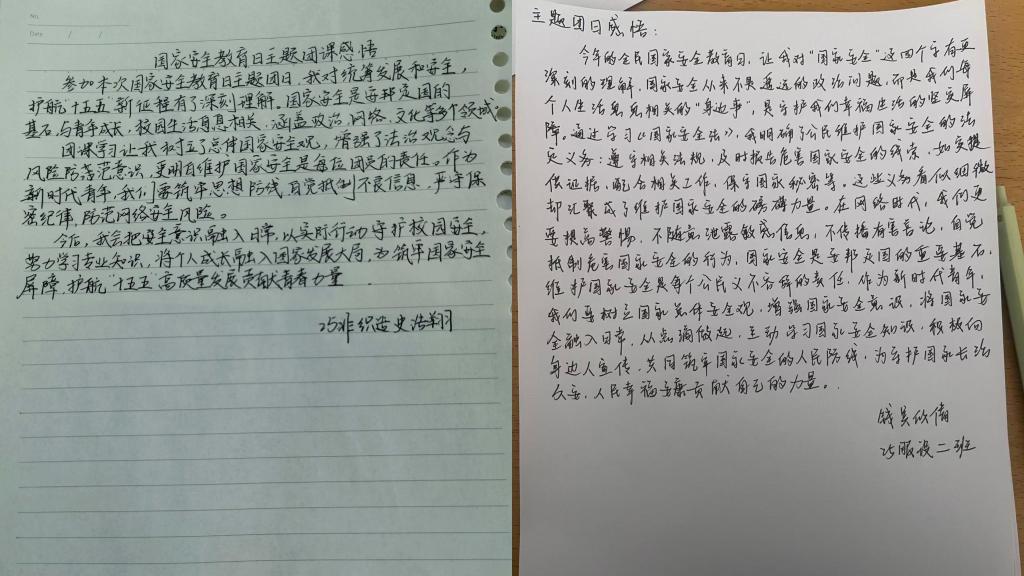 No.
Date / /
国家安全教育日主题团课感悟
参加本次国家安全教育日主题团日,我对统筹发展和安全,
护航十五五新征程有了深刻理解。国家安全是安邦定国的
基石,与青年成长,校园生活息息相关,涵盖政治、网络、文化等多个领域。
团课学习让我树立了总体国家安全观,增强了法治观念与
风险防范意识,更明白维护国家安全是每位团员的责任。作为
新时代青年,我们要筑牢思想防线,自觉抵制不良信息,严守保
密纪律,防范网络安全风险。
今后,我会把安全意识融入日常,以实际行动守护校园安全,
努力学习专业知识,将个人成长融入国家发展大局,为筑牢国家安全
屏障,护航十五五高质量发展贡献青春力量
25非织造史浩翔
主题团日感悟:
今年的全民国家安全教育日,让我对“国家安全”这四个字有更
深刻的理解。国家安全从来不是遥远的政治问题,而是我们每
个人生活息息相关的“身边事”,是守护我们幸福生活的坚实屏
障。通过学习《国家安全法》,我明确了公民维护国家安全的法
定义务:遵守相关法规,及时报告危害国家安全的线索,如实提
供证据,配合相关工作,保守国家秘密等。这些义务看似细微
却汇聚成了维护国家安全的磅礴力量。在网络时代,我们更
要提高警惕,不随意泄露敏感信息,不传播有害言论,自觉
抵制危害国家安全的行为,国家安全是安邦定国的重要基石,
维护国家安全是每个公民义不容辞的责任,作为新时代青年,
我们要树立国家总体安全观,增强国家安全意识,将国家安
全融入日常,从点滴做起,主动学习国家安全知识,积极向
身边人宣传,共同筑牢国家安全的人民防线,为守护国家长治
久安,人民幸福安康贡献自己的力量。
钱吴
25服设二班